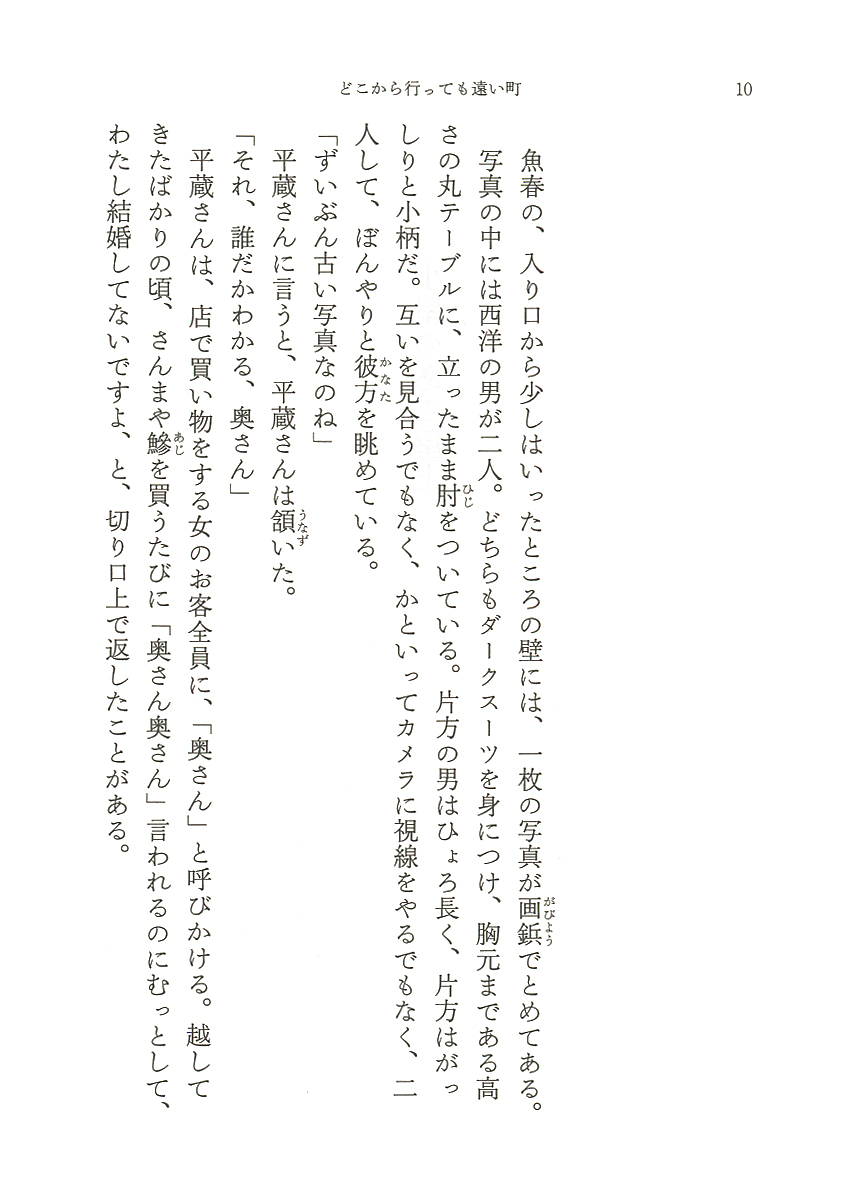 どこから行っても遠い町
10
魚春の、入り口から少しはいったところの壁には、一枚の写真が画鋲でとめてある。
がびよう
写真の中には西洋の男が二人。どちらもダークスーツを身につけ、胸元まである高
さの丸テーブルに、立ったまま肘をついている。片方の男はひょろ長く、片方はがっ
ひじ
しりと小柄だ。互いを見合うでもなく、かといってカメラに視線をやるでもなく、二
人して、ぼんやりと彼方を眺めている。
かなた
「ずいぶん古い写真なのね」
平蔵さんに言うと、平蔵さんは頷いた。
うなず
「それ、誰だかわかる、奥さん」
平蔵さんは、店で買い物をする女のお客全員に、「奥さん」と呼びかける。越して
きたばかりの頃、さんまや鯵を買うたびに「奥さん奥さん」言われるのにむっとして、
あじ
わたし結婚してないですよ、と、切り口上で返したことがある。